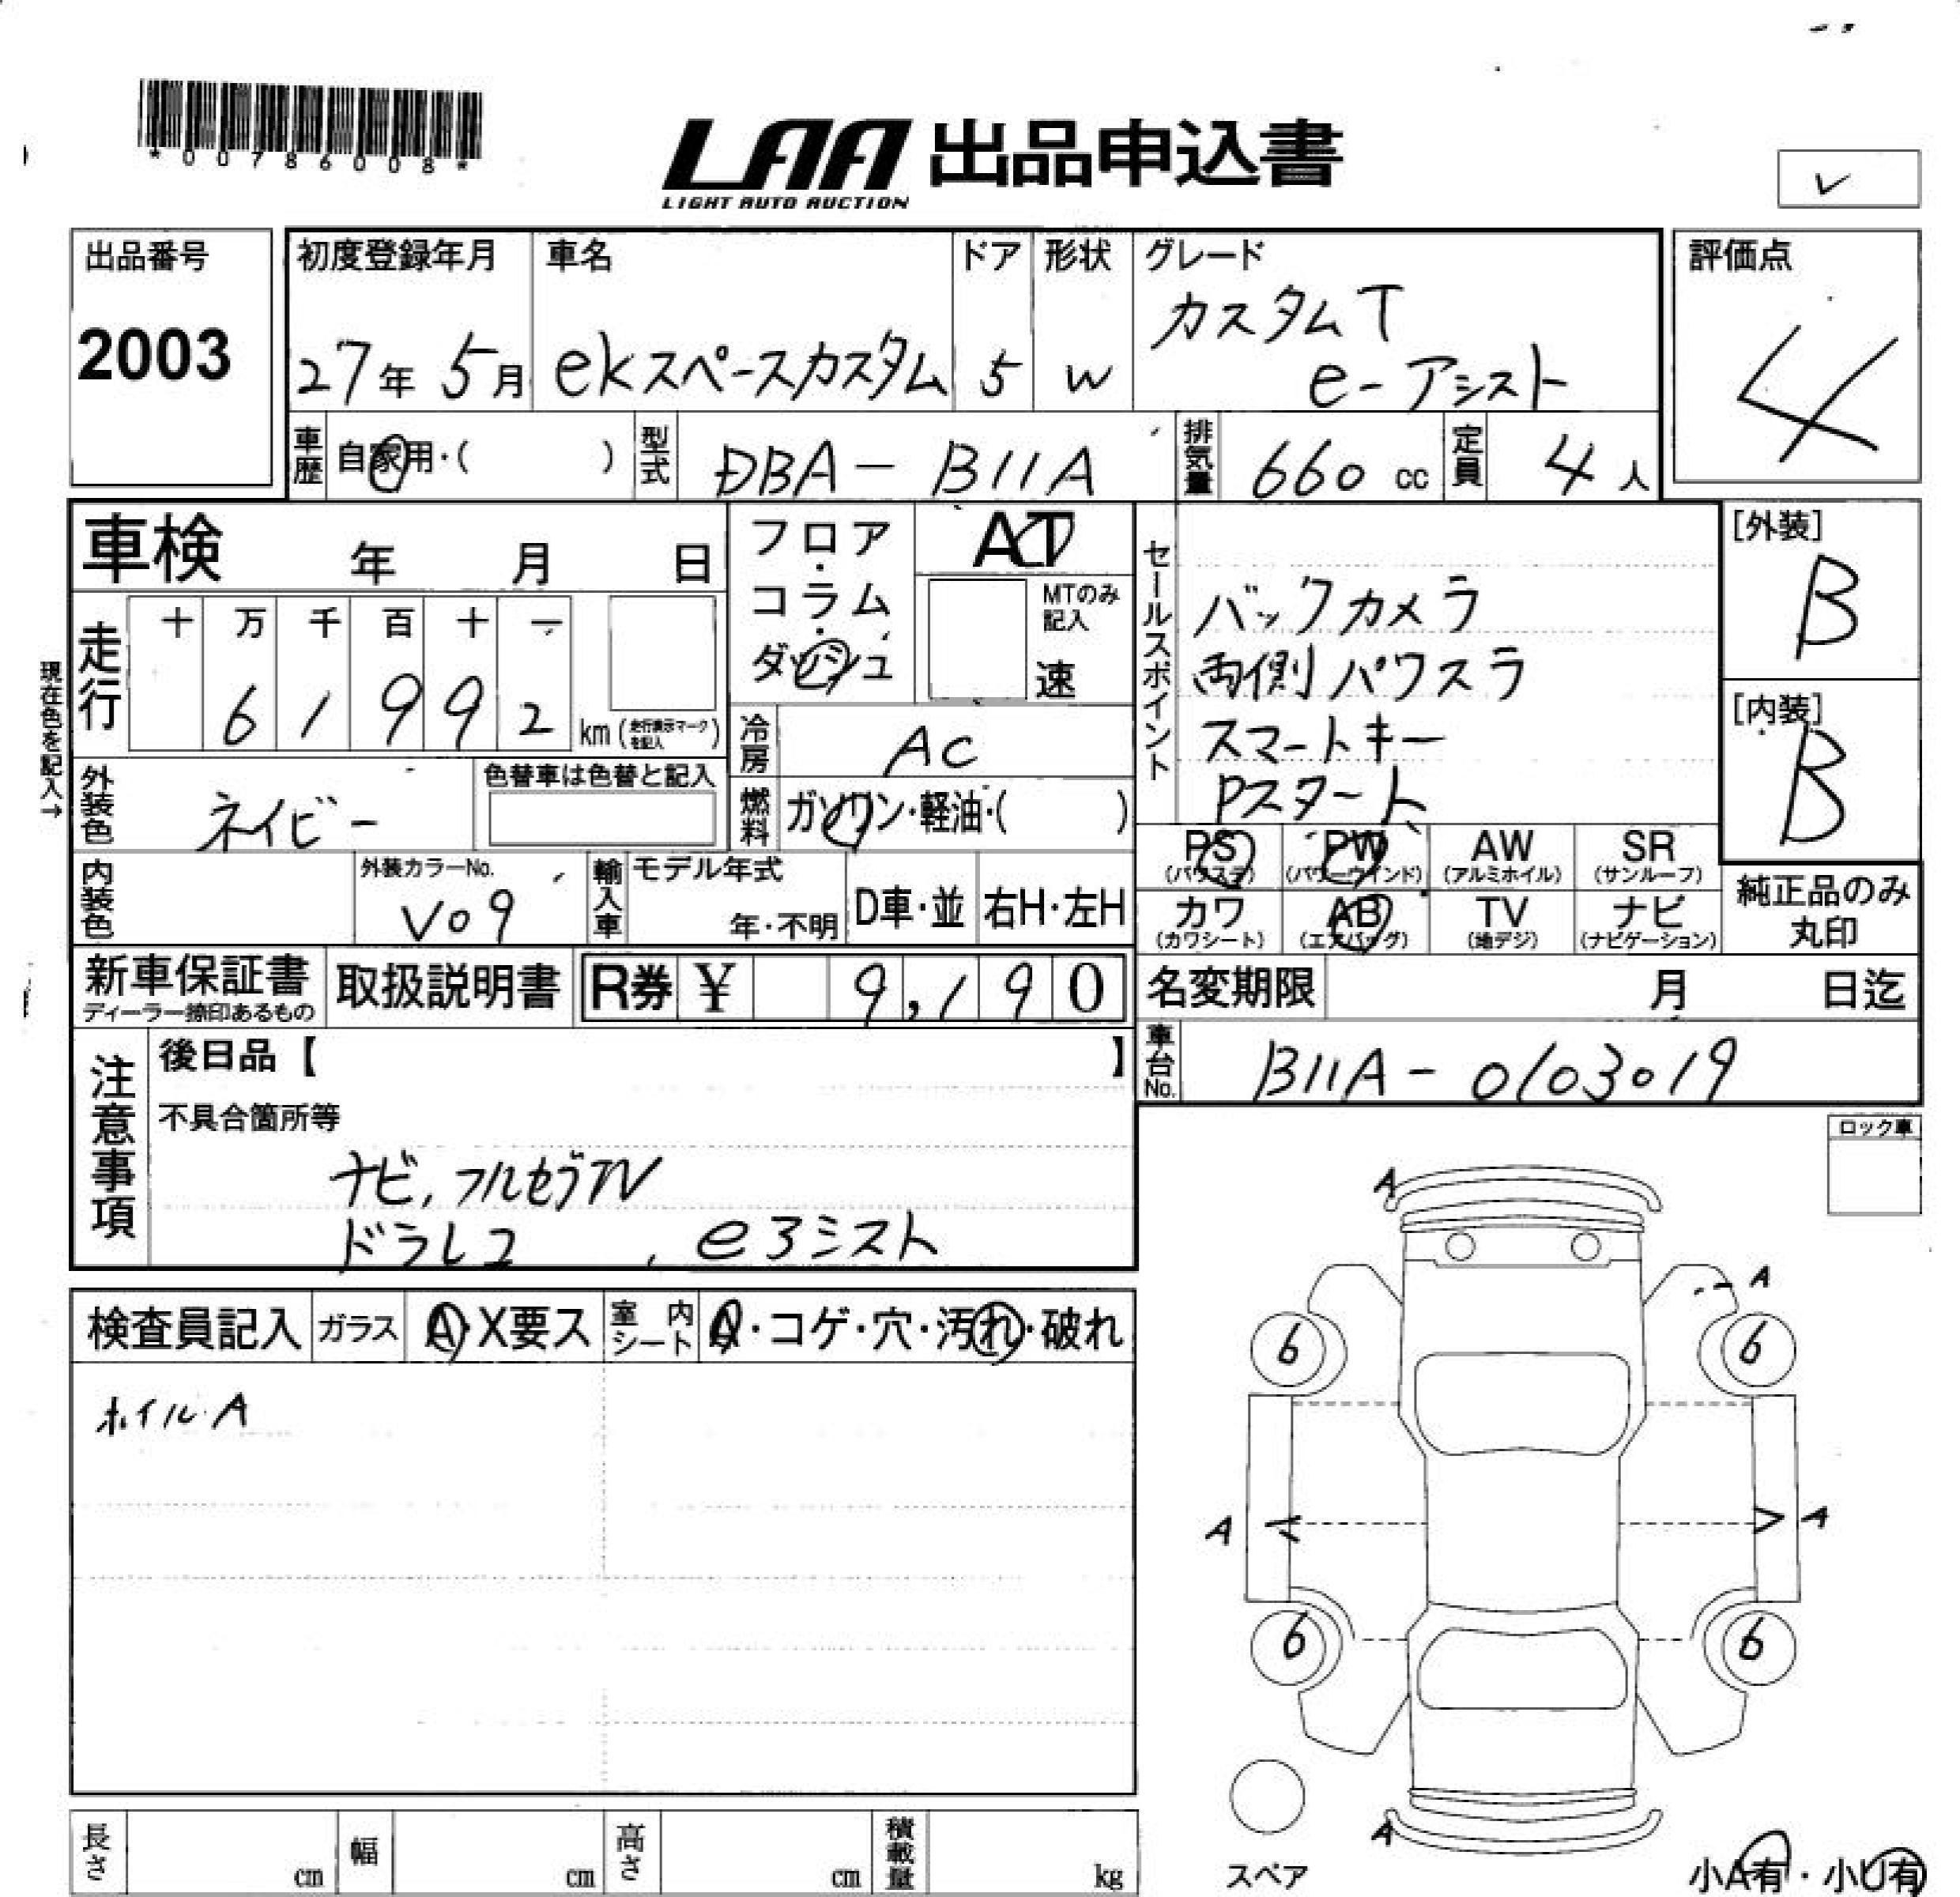 *00786008*
LAA 出品申込書
LIGHT AUTO AUCTION
出品番号
2003
初度登録年月
27年 5月
車名
ekスペースカスタム
ドア
5
形状
W
グレード
カスタムT
e-アシスト
評価点
4
車歴 自家用・( )
型式 DBA-B11A
排気量 660 cc
定員 4人
車検 年 月 日
フロア・コラム・ダッシュ
AT
MTのみ記入
速
走行 十 万 千 百 十 一
6 1 9 9 2 km (走行表示マークを記入)
現在色を記入→
外装色 ネイビー
色替車は色替と記入
冷房 AC
燃料 ガソリン・軽油・( )
内装色
外装カラーNo.
V09
輸入車 モデル年式
年・不明
D車・並
右H・左H
セールスポイント
バックカメラ
両側パワスラ
スマートキー
Pスタート
[外装]
B
[内装]
B
PS (パワステ)
PW (パワーウインド)
AW (アルミホイル)
SR (サンルーフ)
カワ (カワシート)
AB (エアバッグ)
TV (地デジ)
ナビ (ナビゲーション)
純正品のみ
丸印
新車保証書
ディーラー捺印あるもの
取扱説明書
R券 ¥ 9,190
名変期限 月 日迄
車台No. B11A-0103019
注意事項
後日品【 】
不具合箇所等
ナビ,フルセグTV
ドラレコ , e3ミスト
ロック車
検査員記入
ガラス A・X要ス
室内シート A・コゲ・穴・汚れ・破れ
ホイルA
A
A
6
6
A
A
6
6
A
スペア
小A有・小U有
長さ cm
幅 cm
高さ cm
積載量 kg